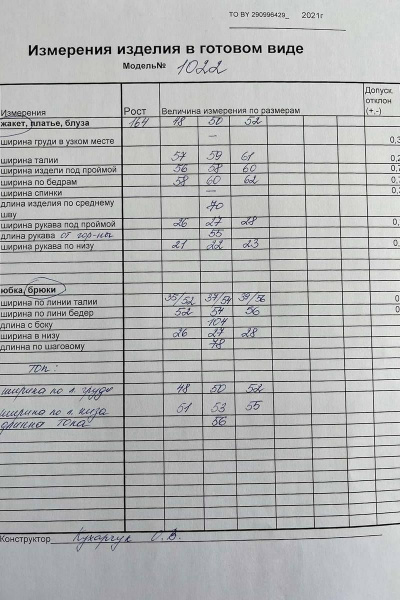 ТО BY 290996429_ 2021г
Измерения изделия в готовом виде
Модель№ 1022
Измерения Рост Величина измерения по размерам Допуск. отклон (+.-)
жакет, платье, блуза 164 48 50 52
ширина груди в узком месте — 0,
ширина талии 57 59 61 0,
ширина издели под проймой 56 58 60 0,
ширина по бедрам 58 60 62 0,
ширина спинки — 0,
длина изделия по среднему шву 70
ширина рукава под проймой 26 27 28 0,
длина рукава от гор-ны 55
ширина рукава по низу 21 22 23 0,
юбка, брюки
ширина по линии талии 35/52 37/54 39/56 0
ширина по лини бедер 52 54 56 0
длина с боку 104
ширина в низу 26 27 28
длинна по шаговому 78
Топ:
ширина по л. груди 48 50 52
ширина по л. низа 51 53 55
длинна топа 56
Конструктор Кухарчук О. В.